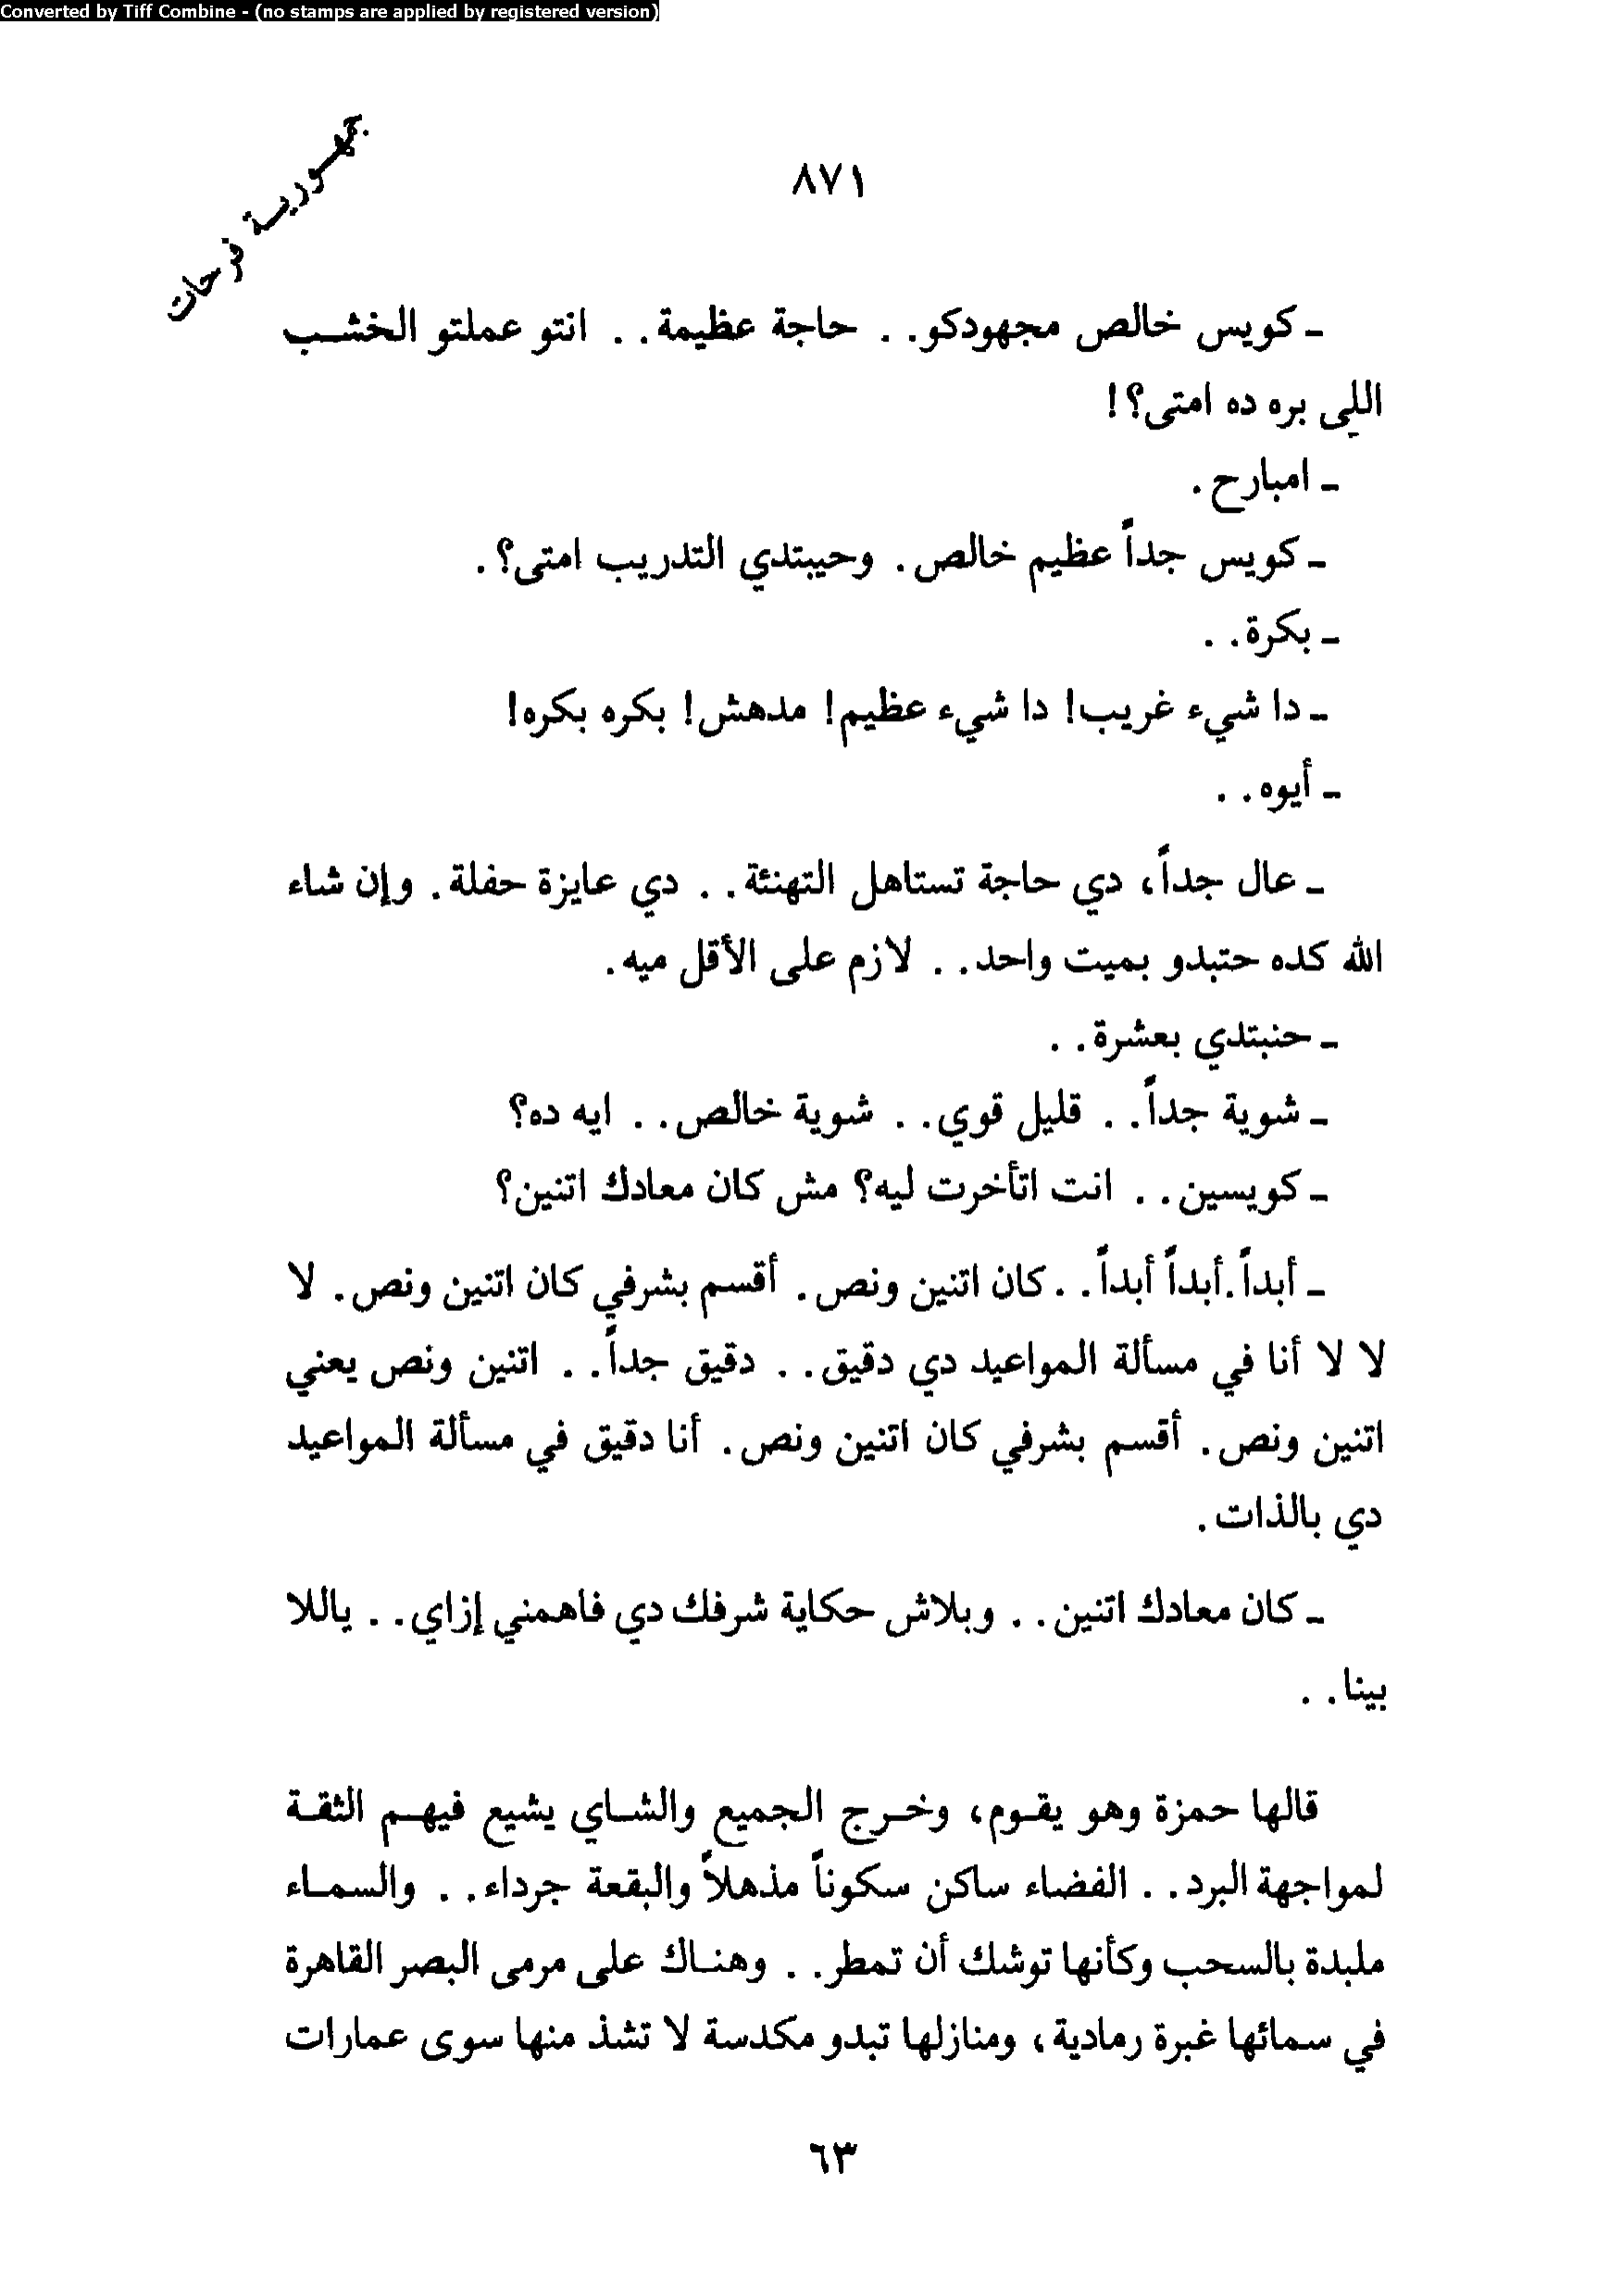 Converted by Tiff Combine - (no stamps are applied by registered version)
جمهورية فرحات
٨٧١
ـ كويس خالص مجهودكو. . حاجة عظيمة. . انتو عملتو الخشب
اللي بره ده امتى؟!
ـ امبارح.
ـ كويس جداً عظيم خالص. وحيبتدي التدريب امتى؟.
ـ بكرة. .
ـ دا شيء غريب! دا شيء عظيم! مدهش! بكره بكره!
ـ أيوه. .
ـ عال جداً، دي حاجة تستاهل التهنئة. . دي عايزة حفلة. وإن شاء
الله كده حتبدو بميت واحد. . لازم على الأقل ميه.
ـ حنبتدي بعشرة. .
ـ شوية جداً. . قليل قوي. . شوية خالص. . ايه ده؟
ـ كويسين. . انت اتأخرت ليه؟ مش كان معادك اتنين؟
ـ أبداً.أبداً أبداً. . كان اتنين ونص. أقسم بشرفي كان اتنين ونص. لا
لا لا أنا في مسألة المواعيد دي دقيق. . دقيق جداً. . اتنين ونص يعني
اتنين ونص. أقسم بشرفي كان اتنين ونص. أنا دقيق في مسألة المواعيد
دي بالذات.
ـ كان معادك اتنين. . وبلاش حكاية شرفك دي فاهمني إزاي. . ياللا
بينا. .
قالها حمزة وهو يقوم، وخرج الجميع والشاي يشيع فيهم الثقة
لمواجهة البرد. . الفضاء ساكن سكوناً مذهلاً والبقعة جرداء. . والسماء
ملبدة بالسحب وكأنها توشك أن تمطر. . وهناك على مرمى البصر القاهرة
في سمائها غبرة رمادية، ومنازلها تبدو مكدسة لا تشذ منها سوى عمارات
٦٣